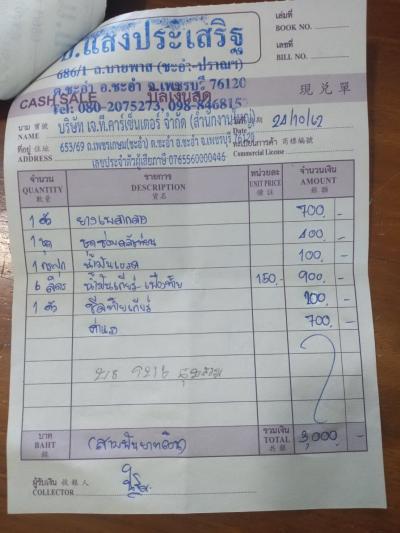 ช.แสงประเสริฐ
686/1 ถ.นายพาส (ชะอำ-ปราณฯ)
ต.ชะอำ อ.ชะอำ จ.เพชรบุรี 76120
Tel: 080-2075273, 098-846815
เล่มที่
BOOK NO.
เลขที่
BILL NO.
CASH SALE บิลเงินสด 現兑單
นาม 寶號 บริษัท เจ.ที.คาร์เซ็นเตอร์ จำกัด (สำนักงานใหญ่)
NAME
วันที่ 日期 28/10/62
Date
ที่อยู่ 住址 653/69 ถ.เพชรเกษม(ชะอำ) ต.ชะอำ อ.ชะอำ จ.เพชรบุรี 76120
ADDRESS เลขประจำตัวผู้เสียภาษี 0765560000446
ทะเบียนการค้า 商標編號
Commercial License
จำนวน รายการ หน่วยละ จำนวนเงิน
QUANTITY DESCRIPTION UNIT PRICE AMOUNT
數量 貨名 價註 銀額
1 ตัว ยางเพลากลาง 700 -
1 ชุด ชุดซ่อมคลัทช์บน 400 -
1 กระปุก น้ำมันเบรค 100 -
6 ลิตร น้ำมันเกียร์-เฟืองท้าย 150.- 900 -
1 ตัว ซีลท้ายเกียร์ 200 -
ค่าแรง 700 -
บาท (สามพันบาทถ้วน) รวมเงิน 3,000 -
BAHT TOTAL
銖 共銀
ผู้รับเงิน 收銀人
COLLECTOR